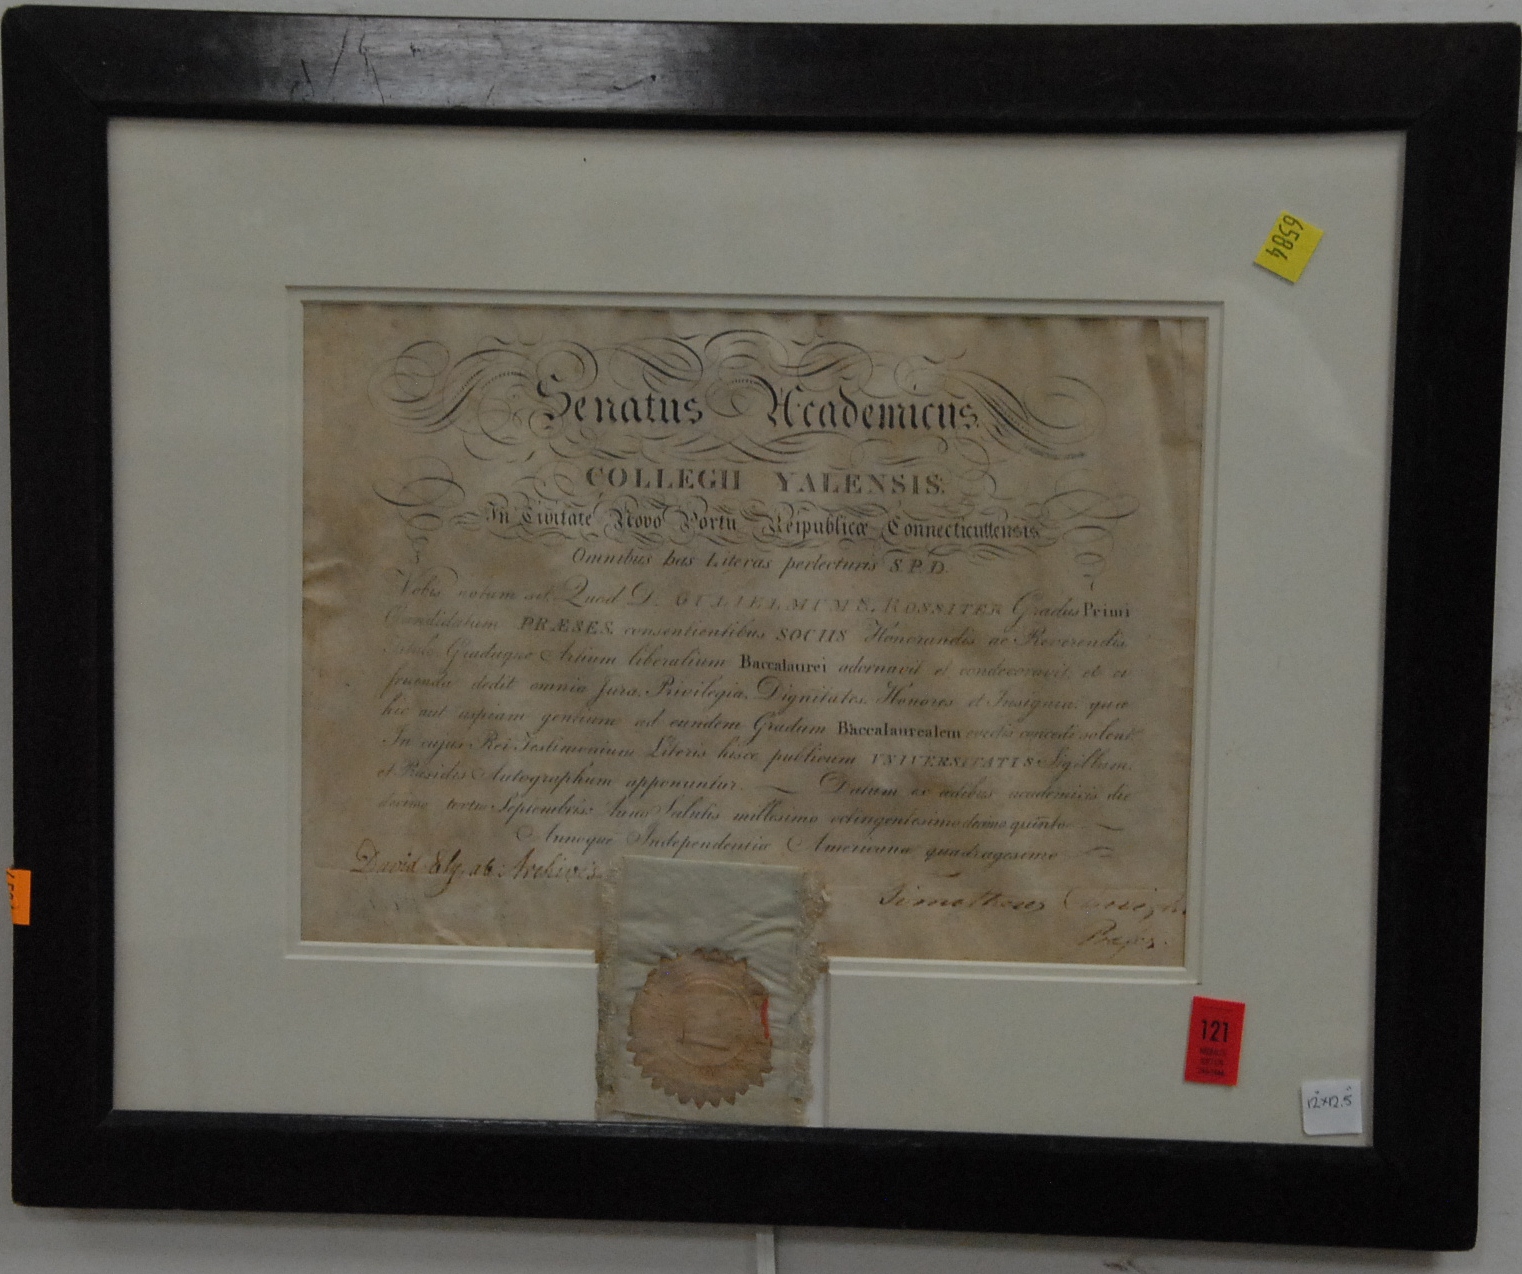 Senatus Academicus
COLLEGII YALENSIS.
In Civitate Novo Portu Reipublicæ Connecticuttensis
Omnibus has Literas perlecturis S.P.D.
Vobis notum sit, Quod D. GULIELMUM S. ROSSITER Gradus Primi
Candidatum PRÆSES, consentientibus SOCIIS Honorandis ac Reverendis
Graduque Artium liberalium Baccalaurei adornavit et condecoravit, et ei
fruenda dedit omnia Jura, Privilegia, Dignitates, Honores et Insignia, quæ
hic aut uspiam gentium ad eundem Gradum Baccalaurealem evectis concedi solent.
In cujus Rei Testimonium Literis hisce publicum UNIVERSITATIS Sigillum,
et Præsidis Autographum apponuntur. — Datum ex ædibus academicis die
decimo tertio Septembris: Anno Salutis millesimo octingentesimo decimo quinto —
Annoque Independentiæ Americanæ quadragesimo
David Ely, ab Archivis.
Timotheus
Præses.
6584
121
12x12.5